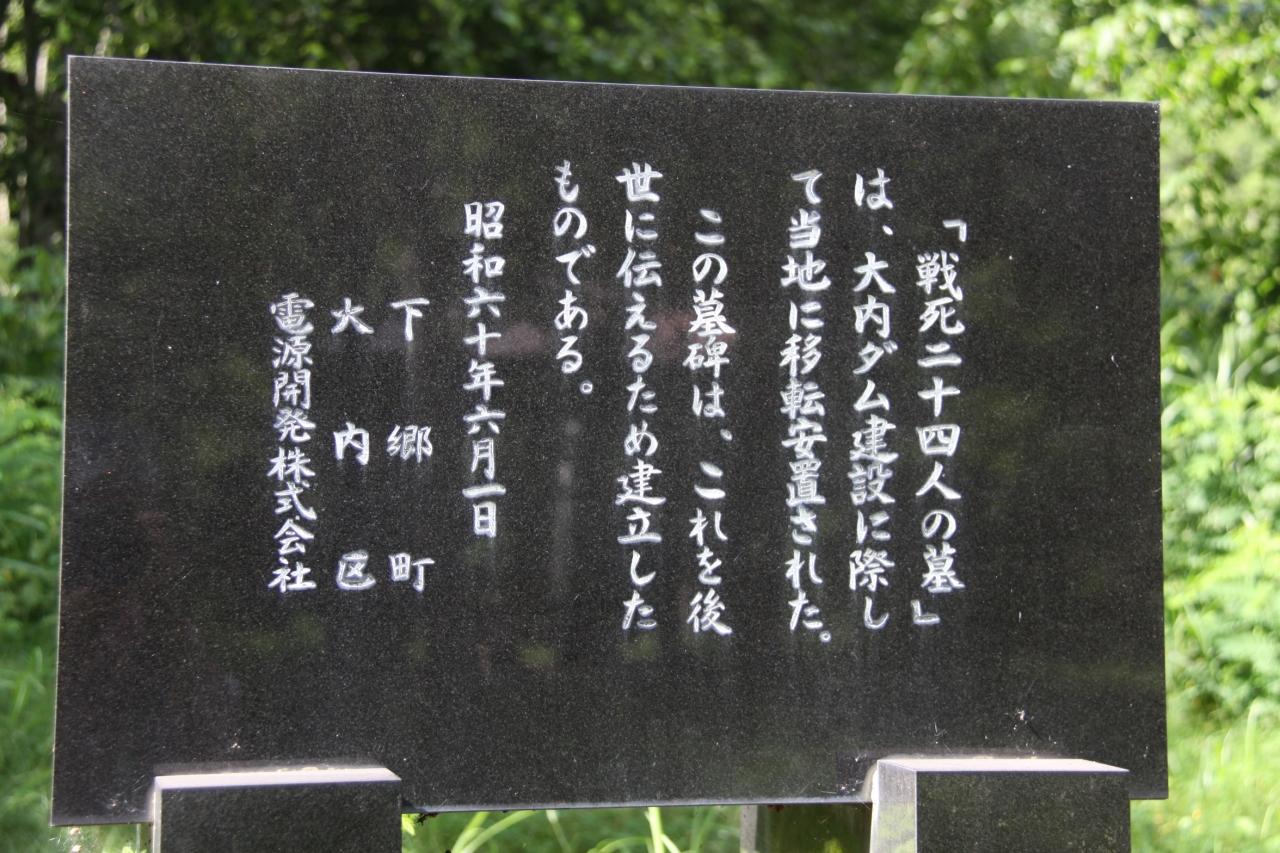 「戦死二十四人の墓」
は、大内ダム建設に際し
て当地に移転安置された。
この墓碑は、これを後
世に伝えるため建立した
ものである。
昭和六十年六月一日
下郷町
大内区
電源開発株式会社